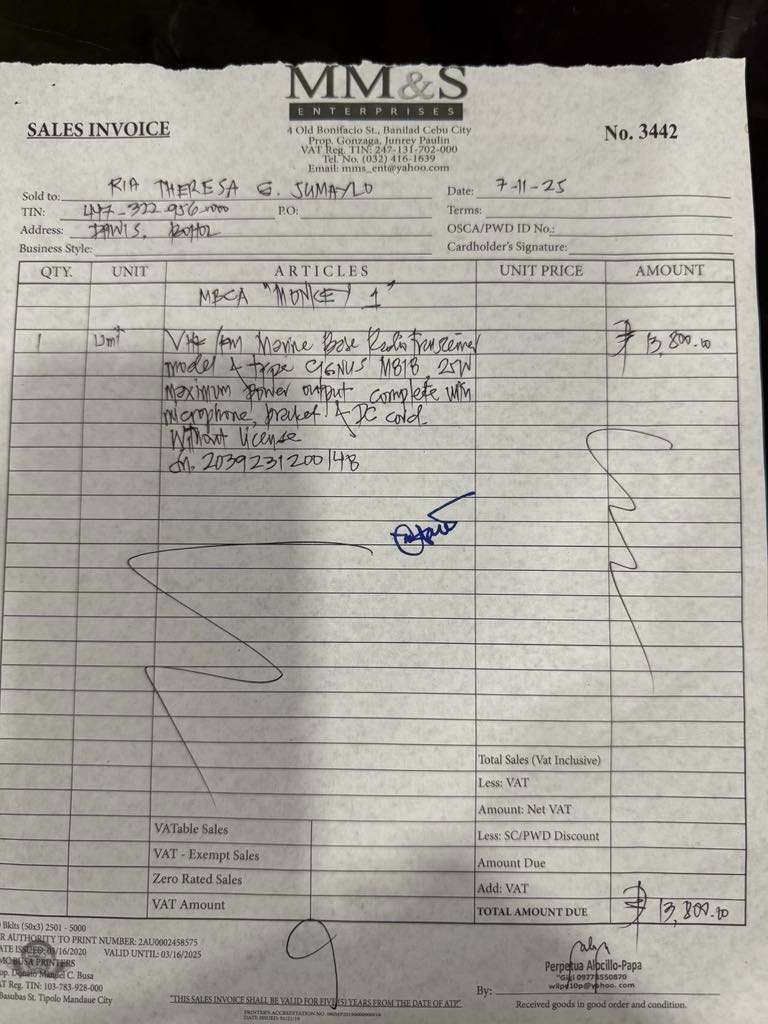 MM&S
ENTERPRISES
4 Old Bonifacio St., Banilad Cebu City
Prop. Gonzaga, Junrey Paulin
VAT Reg. TIN: 247-131-702-000
Tel. No. (032) 416-1639
Email: mms_ent@yahoo.com
SALES INVOICE
No. 3442
Sold to: RIA THERESA G. SUMAYLO
Date: 7-11-25
TIN: 447-322-956-000 P.O:
Terms:
Address: DAWIS, BOHOL
OSCA/PWD ID No.:
Business Style:
Cardholder's Signature:
QTY. UNIT ARTICLES UNIT PRICE AMOUNT
MBCA "MONKEY 1"
1 Unit VHF/FM Marine Base Radio Transceiver ₱ 13,800.00
model & type CIGNUS M81B, 25W
maximum power output complete with
microphone, bracket & DC cord.
Without license
sn. 203923120048
Total Sales (Vat Inclusive)
Less: VAT
Amount: Net VAT
VATable Sales
Less: SC/PWD Discount
VAT - Exempt Sales
Amount Due
Zero Rated Sales
Add: VAT
VAT Amount
TOTAL AMOUNT DUE ₱ 13,800.00
Bklts (50x3) 2501 - 5000
R AUTHORITY TO PRINT NUMBER: 2AU0002458575
ATE ISSUED: 03/16/2020 VALID UNTIL: 03/16/2025
MOBUSA PRINTERS
op. Donato Manuel C. Busa
AT Reg. TIN: 103-783-928-000
Basubas St. Tipolo Mandaue City
"THIS SALES INVOICE SHALL BE VALID FOR FIVE (5) YEARS FROM THE DATE OF ATP"
Perpetua Alocillo-Papa
By:
Received goods in good order and condition.